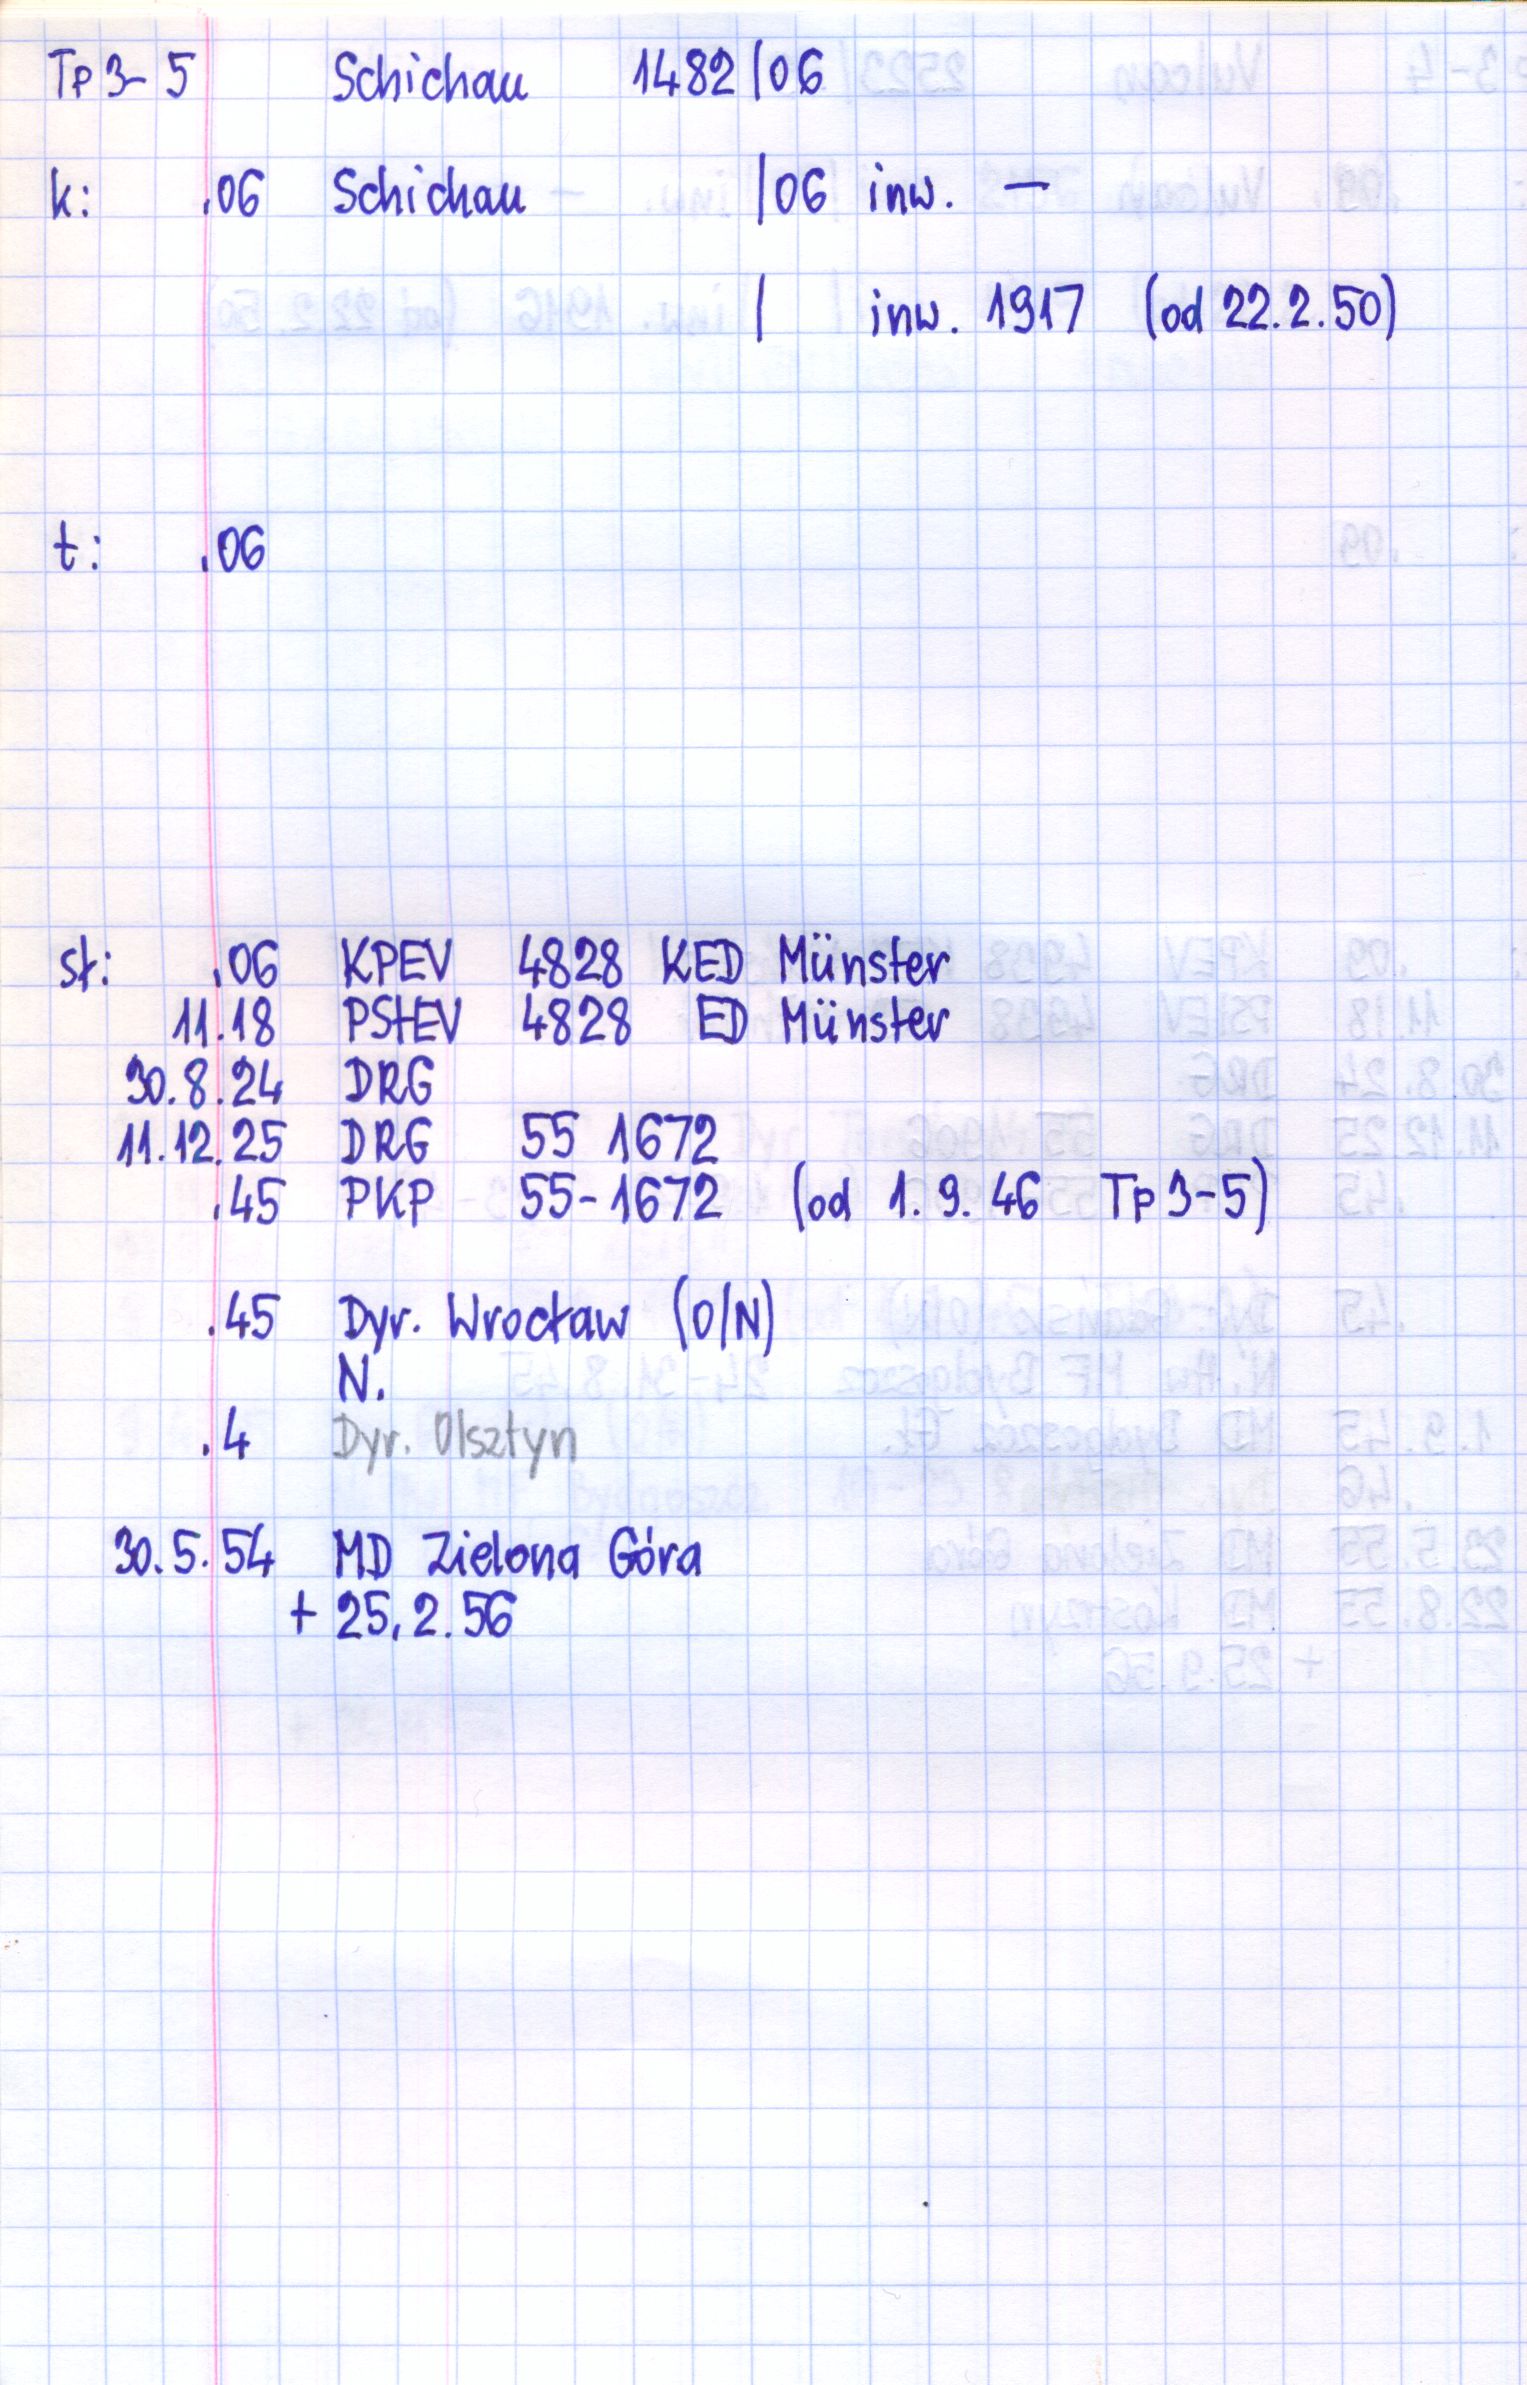 Tp 3-5 Schichau 1482/06
k: .06 Schichau /06 inw. —
/ inw. 1917 (od 22.2.50)
t: .06
st: .06 KPEV 4828 KED Münster
11.18 PStEV 4828 ED Münster
30.8.24 DRG
11.12.25 DRG 55 1672
.45 PKP 55-1672 (od 1.9.46 Tp 3-5)
.45 Dyr. Wrocław (O/N)
N.
.4 Dyr. Olsztyn
30.5.54 MD Zielona Góra
+ 25.2.56